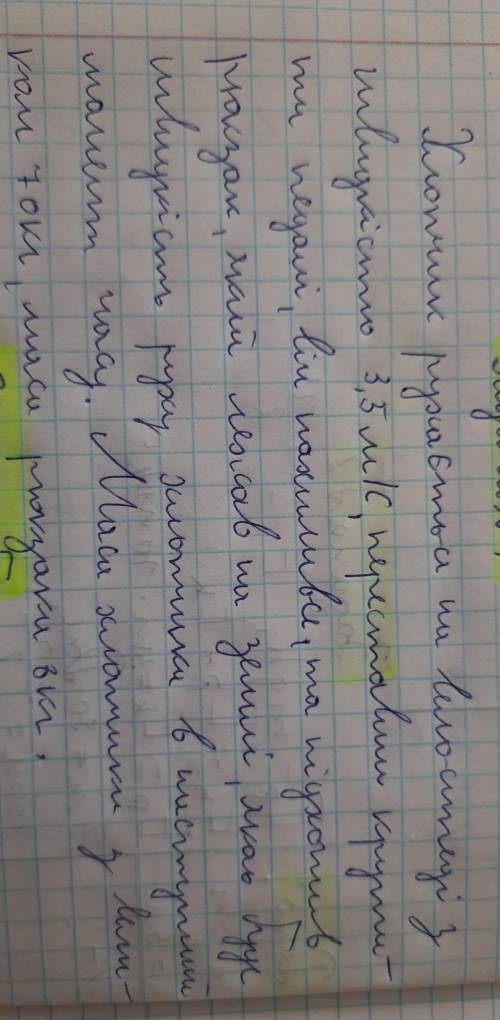 Хлопчик рухається на велосипеді з
швидкістю 3,5 м/с, переставши крути-
ти педалі, він нахилився, та підхопив
рюкзак, який лежав на землі, якою буде
швидкість руху хлопчика в наступний
момент часу. Маса хлопчика з вели-
ком 70кг, маса рюкзака 3кг.